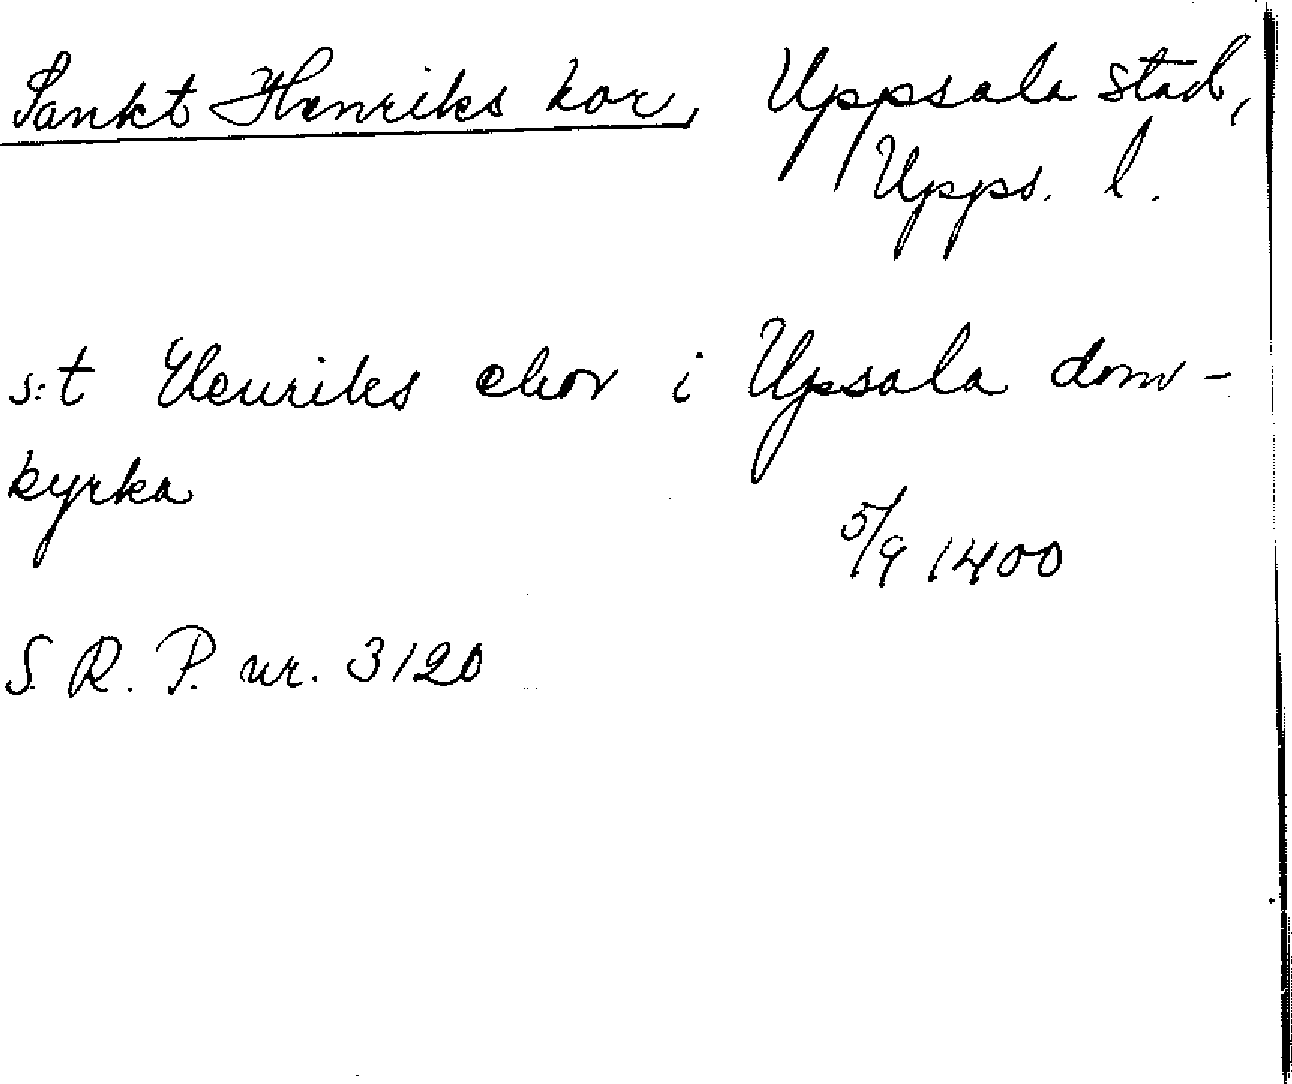 Sankt Henriks kor, Uppsala stad,
Upps. l.
s:t Henriks chor i Upsala dom-
kyrka
5/9 1400
S. R. P. nr. 3120